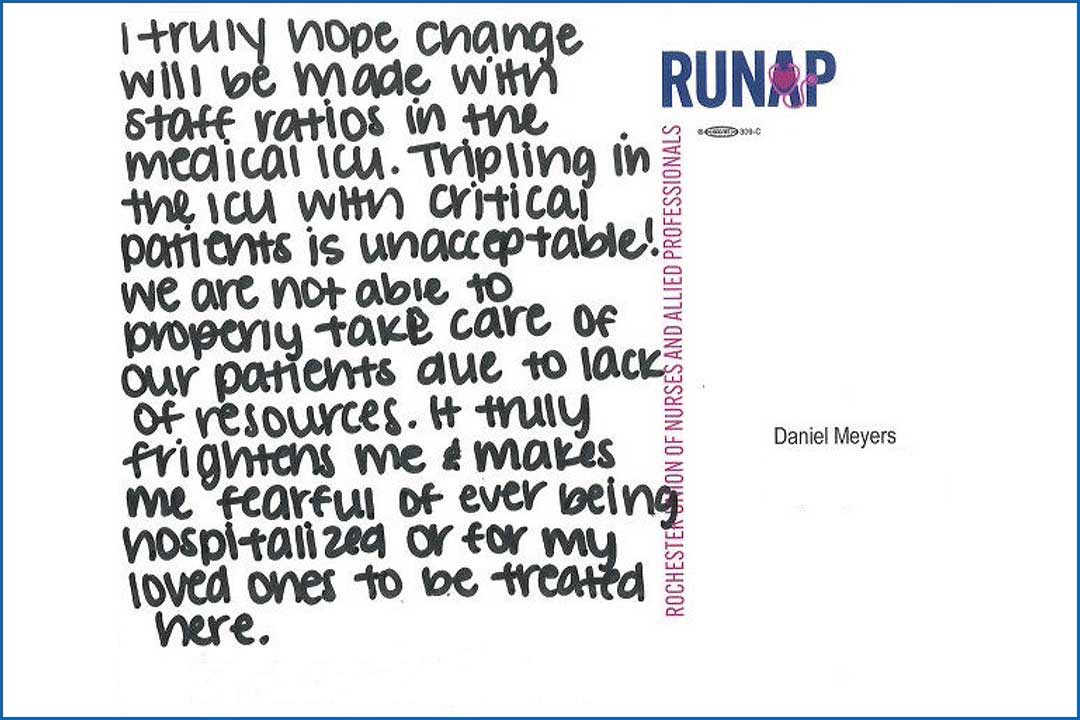 I truly hope change
will be made with
staff ratios in the
medical ICU. Tripling in
the ICU with critical
patients is unacceptable!
we are not able to
properly take care of
our patients due to lack
of resources. It truly
frightens me & makes
me fearful of ever being
hospitalized or for my
loved ones to be treated
here.
RUNAP
309-C
ROCHESTER UNION OF NURSES AND ALLIED PROFESSIONALS
Daniel Meyers